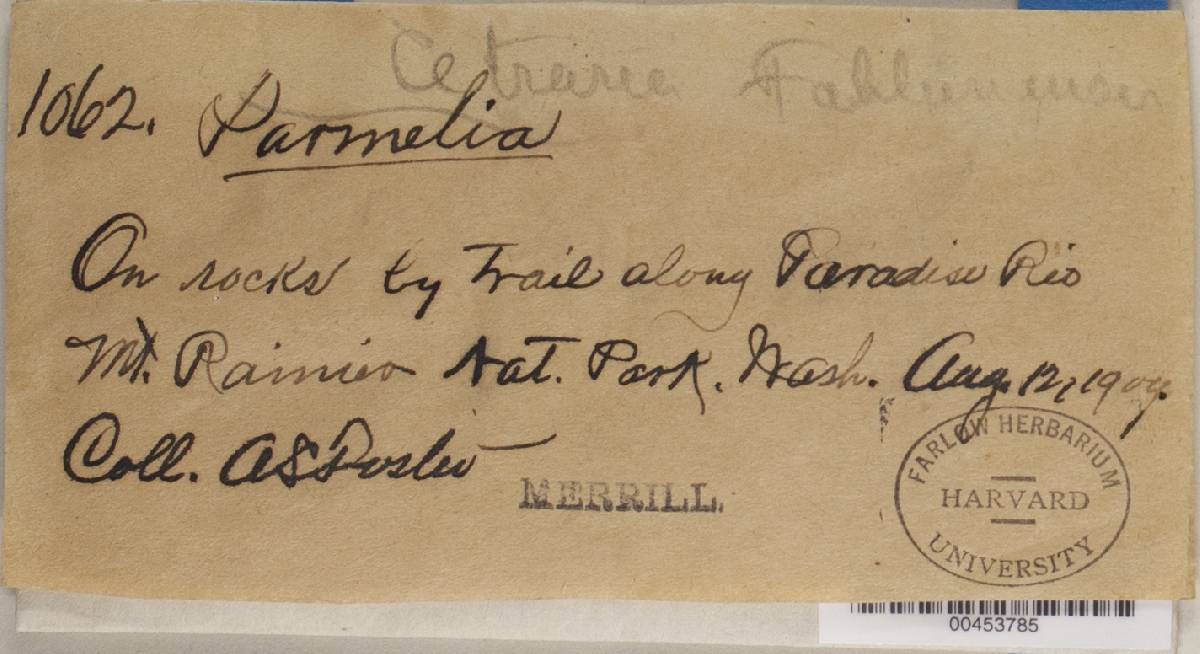 Cetraria Fahlunensis
1062. Parmelia
On rocks by trail along Paradise Riv
Mt. Rainier Nat. Park. Wash. Aug. 12, 1909.
Coll. AS Foster
MERRILL.
FARLOW HERBARIUM
HARVARD
UNIVERSITY
00453785